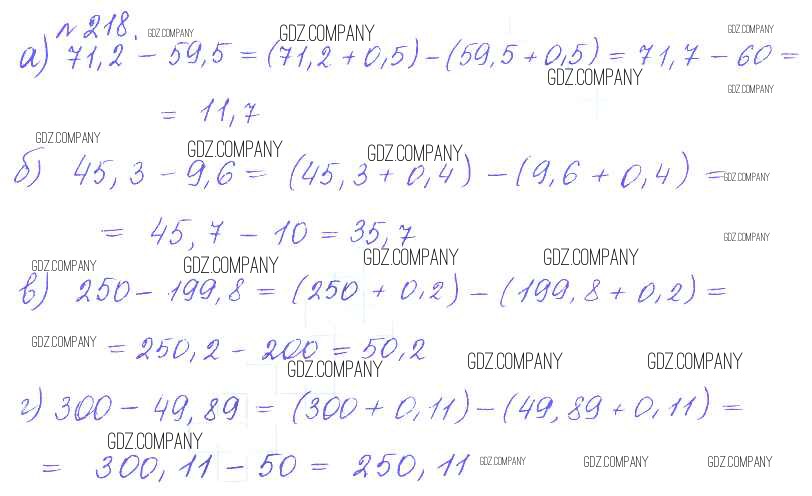 № 218. GDZ.COMPANY GDZ.COMPANY GDZ.COMPANY
а) 71,2 - 59,5 = (71,2 + 0,5) - (59,5 + 0,5) = 71,7 - 60 =
GDZ.COMPANY GDZ.COMPANY
= 11,7
GDZ.COMPANY GDZ.COMPANY GDZ.COMPANY
б) 45,3 - 9,6 = (45,3 + 0,4) - (9,6 + 0,4) = GDZ.COMPANY
= 45,7 - 10 = 35,7 GDZ.COMPANY
GDZ.COMPANY GDZ.COMPANY GDZ.COMPANY GDZ.COMPANY
в) 250 - 199,8 = (250 + 0,2) - (199,8 + 0,2) =
GDZ.COMPANY = 250,2 - 200 = 50,2
GDZ.COMPANY GDZ.COMPANY GDZ.COMPANY
г) 300 - 49,89 = (300 + 0,11) - (49,89 + 0,11) =
GDZ.COMPANY
= 300,11 - 50 = 250,11 GDZ.COMPANY GDZ.COMPANY GDZ.COMPANY